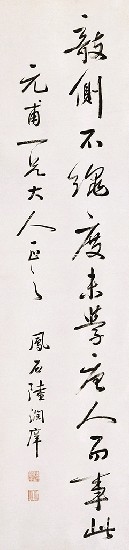 敧側不繩度未學唐人而事此
元甫一兄大人正之
鳳石陸潤庠